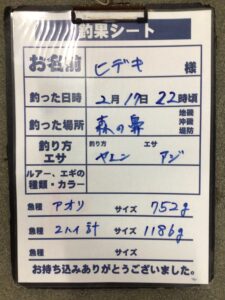 釣果シート
お名前 ヒデキ 様
釣った日時 2月17日 22時頃
釣った場所 森の鼻 地磯 沖磯 堤防
釣り方 エサ 釣り方 ヤエン エサ アジ
ルアー、エギの種類・カラー
魚種 アオリ サイズ 752g
魚種 2ハイ計 サイズ 1186g
魚種 サイズ
お持ち込みありがとうございました。